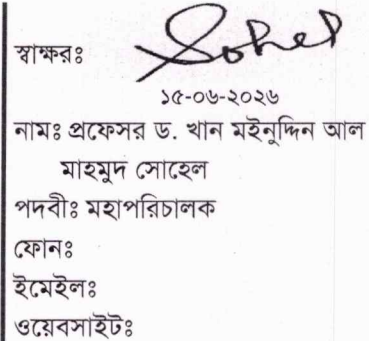 স্বাক্ষরঃ Sohel
১৫-০৬-২০২৬
নামঃ প্রফেসর ড. খান মইনুদ্দিন আল
মাহমুদ সোহেল
পদবীঃ মহাপরিচালক
ফোনঃ
ইমেইলঃ
ওয়েবসাইটঃ